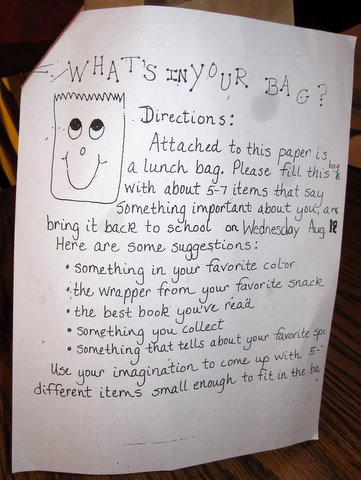 WHAT'S IN YOUR BAG?
Directions:
Attached to this paper is
a lunch bag. Please fill this bag
with about 5-7 items that say
something important about you, an
bring it back to school on Wednesday Aug. 18
Here are some suggestions:
• something in your favorite color
• the wrapper from your favorite snack
• the best book you've read
• something you collect
• something that tells about your favorite spo
Use your imagination to come up with 5-
different items small enough to fit in the ba